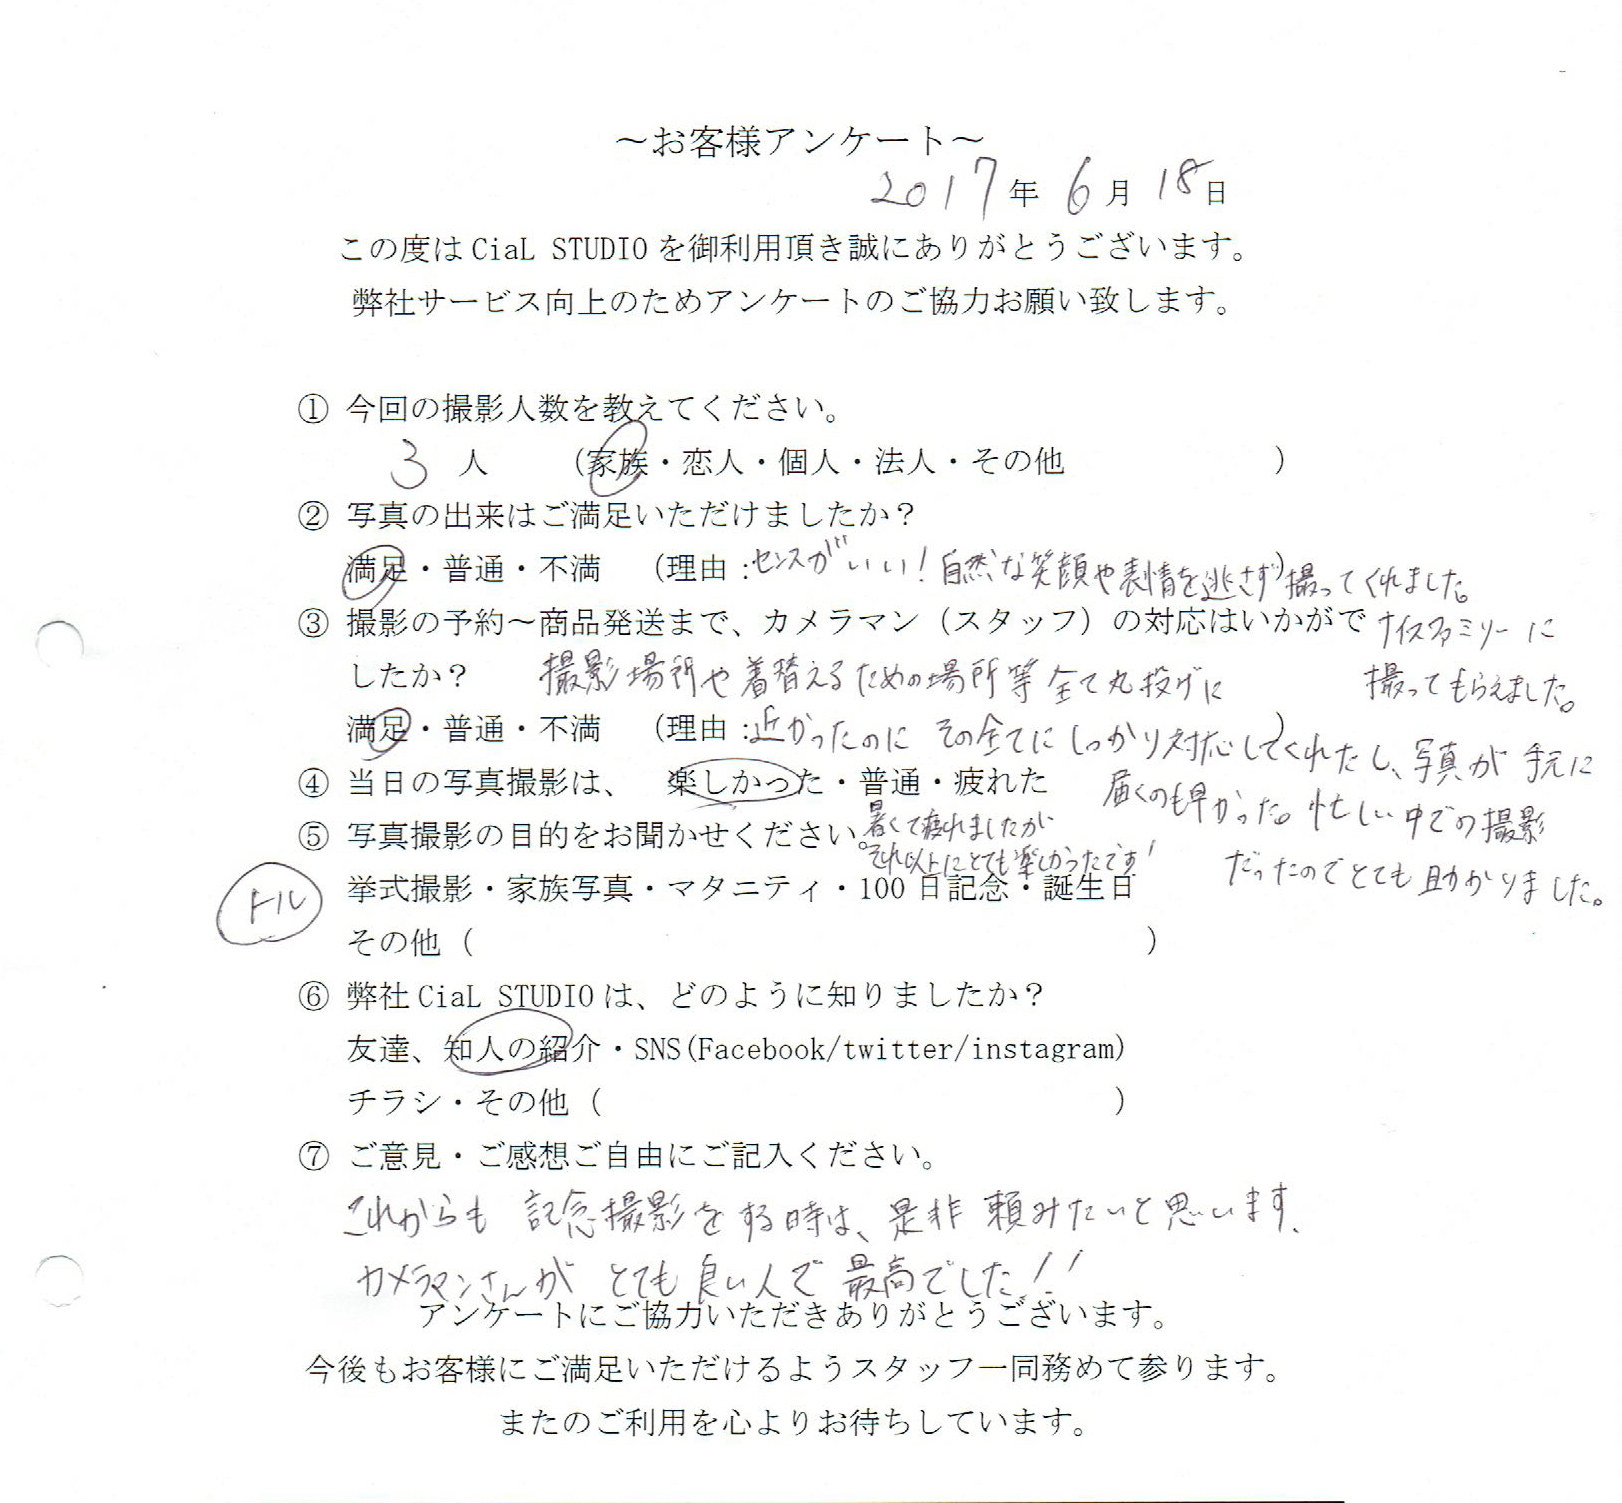 ～お客様アンケート～
2017年 6月 18日
この度はCiaL STUDIOを御利用頂き誠にありがとうございます。
弊社サービス向上のためアンケートのご協力お願い致します。
① 今回の撮影人数を教えてください。
3 人 (家族・恋人・個人・法人・その他 )
② 写真の出来はご満足いただけましたか？
満足・普通・不満 (理由:センスがいい！自然な笑顔や表情を逃さず)撮ってくれました。
ナイスファミリーに
撮ってもらえました。
③ 撮影の予約～商品発送まで、カメラマン（スタッフ）の対応はいかがで
したか？ 撮影場所や着替えるための場所等全て丸投げに
満足・普通・不満 (理由:近かったのに その全てにしっかり対応し)てくれたし、写真が手元に
届くのも早かった。忙しい中での撮影
だったのでとても助かりました。
④ 当日の写真撮影は、 楽しかった・普通・疲れた
暑くて疲れましたが
それ以上にとても楽しかったです！
⑤ 写真撮影の目的をお聞かせください。
トル
挙式撮影・家族写真・マタニティ・100日記念・誕生日
その他（ ）
⑥ 弊社CiaL STUDIOは、どのように知りましたか？
友達、知人の紹介・SNS(Facebook/twitter/instagram)
チラシ・その他（ ）
⑦ ご意見・ご感想ご自由にご記入ください。
これからも 記念撮影をする時は、是非 頼みたいと思います、
カメラマンさんが とても良い人で 最高でした！！
アンケートにご協力いただきありがとうございます。
今後もお客様にご満足いただけるようスタッフ一同務めて参ります。
またのご利用を心よりお待ちしています。